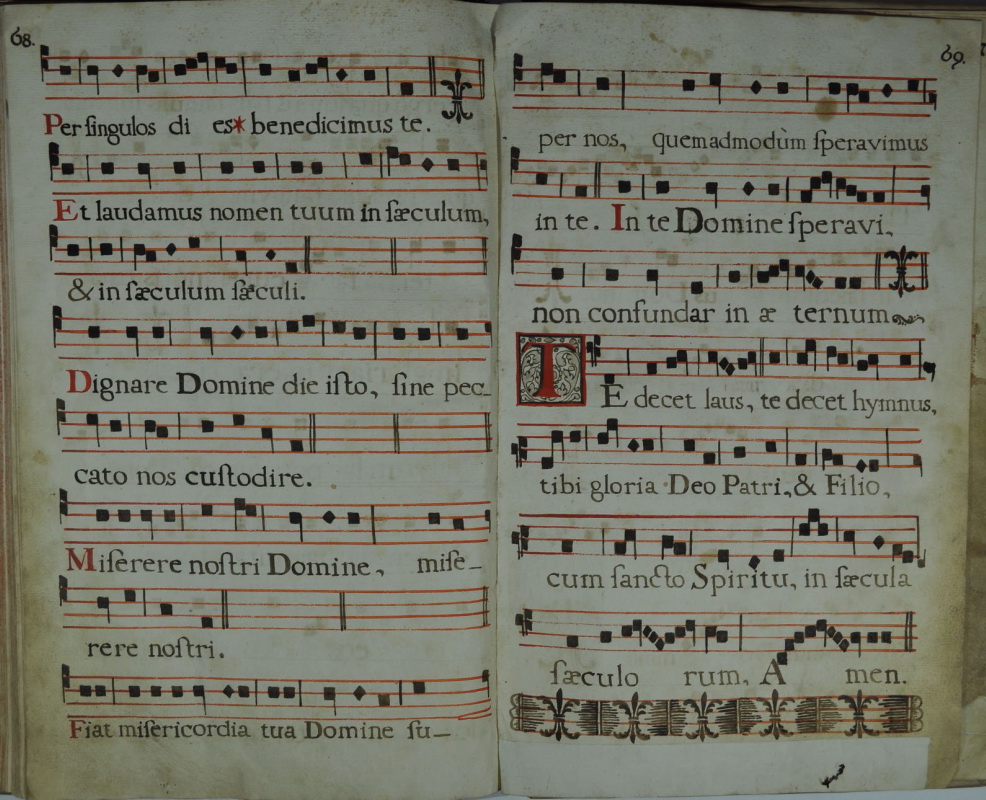 68.
Per ſingulos di es* benedicimus te.
Et laudamus nomen tuum in ſæculum,
& in ſæculum ſæculi.
Dignare Domine die iſto, ſine pec_
cato nos cuſtodire.
Miſerere noſtri Domine, miſe_
rere noſtri.
Fiat miſericordia tua Domine ſu_
69.
per nos, quemadmodùm ſperavimus
in te. In te Domine ſperavi,
non confundar in æ ternum
TE decet laus, te decet hymnus,
tibi gloria Deo Patri, & Filio,
cum ſancto Spiritu, in ſæcula
ſæculo rum, A men.